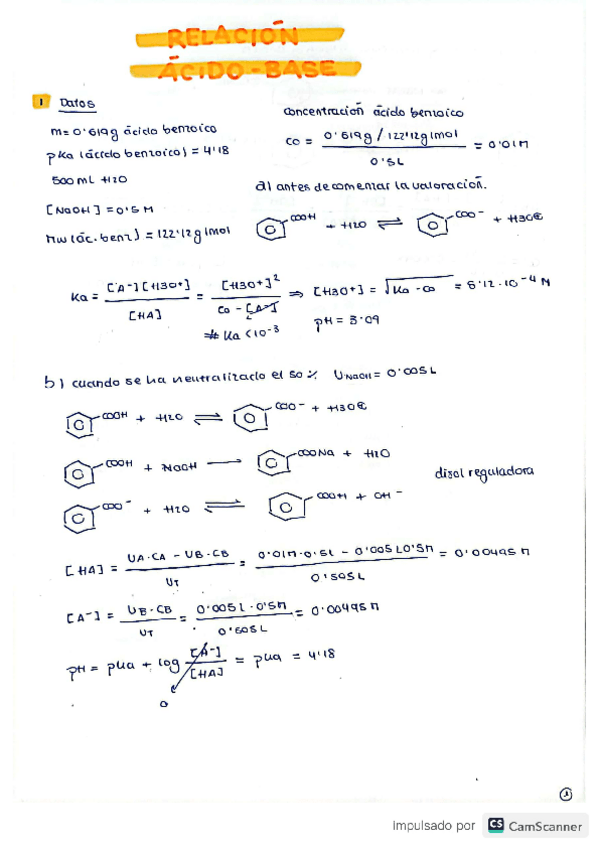 RELACIÓN
ÁCIDO-BASE
1 Datos
m=0'619g ácido benzoico
pKa (ácido benzoico) = 4'18
500 mL H2O
[NaOH] = 0'5 M
Mw (ác. benz) = 122'12g/mol
concentración ácido benzoico
CO = 0'619g / 122'12g/mol / 0'5L = 0'01M
a) antes de comenzar la valoración.
COOH + H2O ⇌ COO- + H3O⊕
Ka = [A-][H3O+] / [HA] = [H3O+]² / Co - [A-] ⇒ [H3O+] = √Ka·Co = 8'12·10-4 M
* Ka <10-3
pH = 3'09
b) cuando se ha neutralizado el 50% VNaOH = 0'005L
COOH + H2O ⇌ COO- + H3O⊕
COOH + NaOH → COONa + H2O
disol reguladora
COO- + H2O ⇌ COOH + OH-
[HA] = VA·CA - VB·CB / VT = 0'01M·0'5L - 0'005L0'5M / 0'505L = 0'00495 M
[A-] = VB·CB / VT = 0'005L·0'5M / 0'505L = 0'00495M
pH = pKa + log [A-] / [HA] = pKa = 4'18
0
1
Impulsado por CS CamScanner